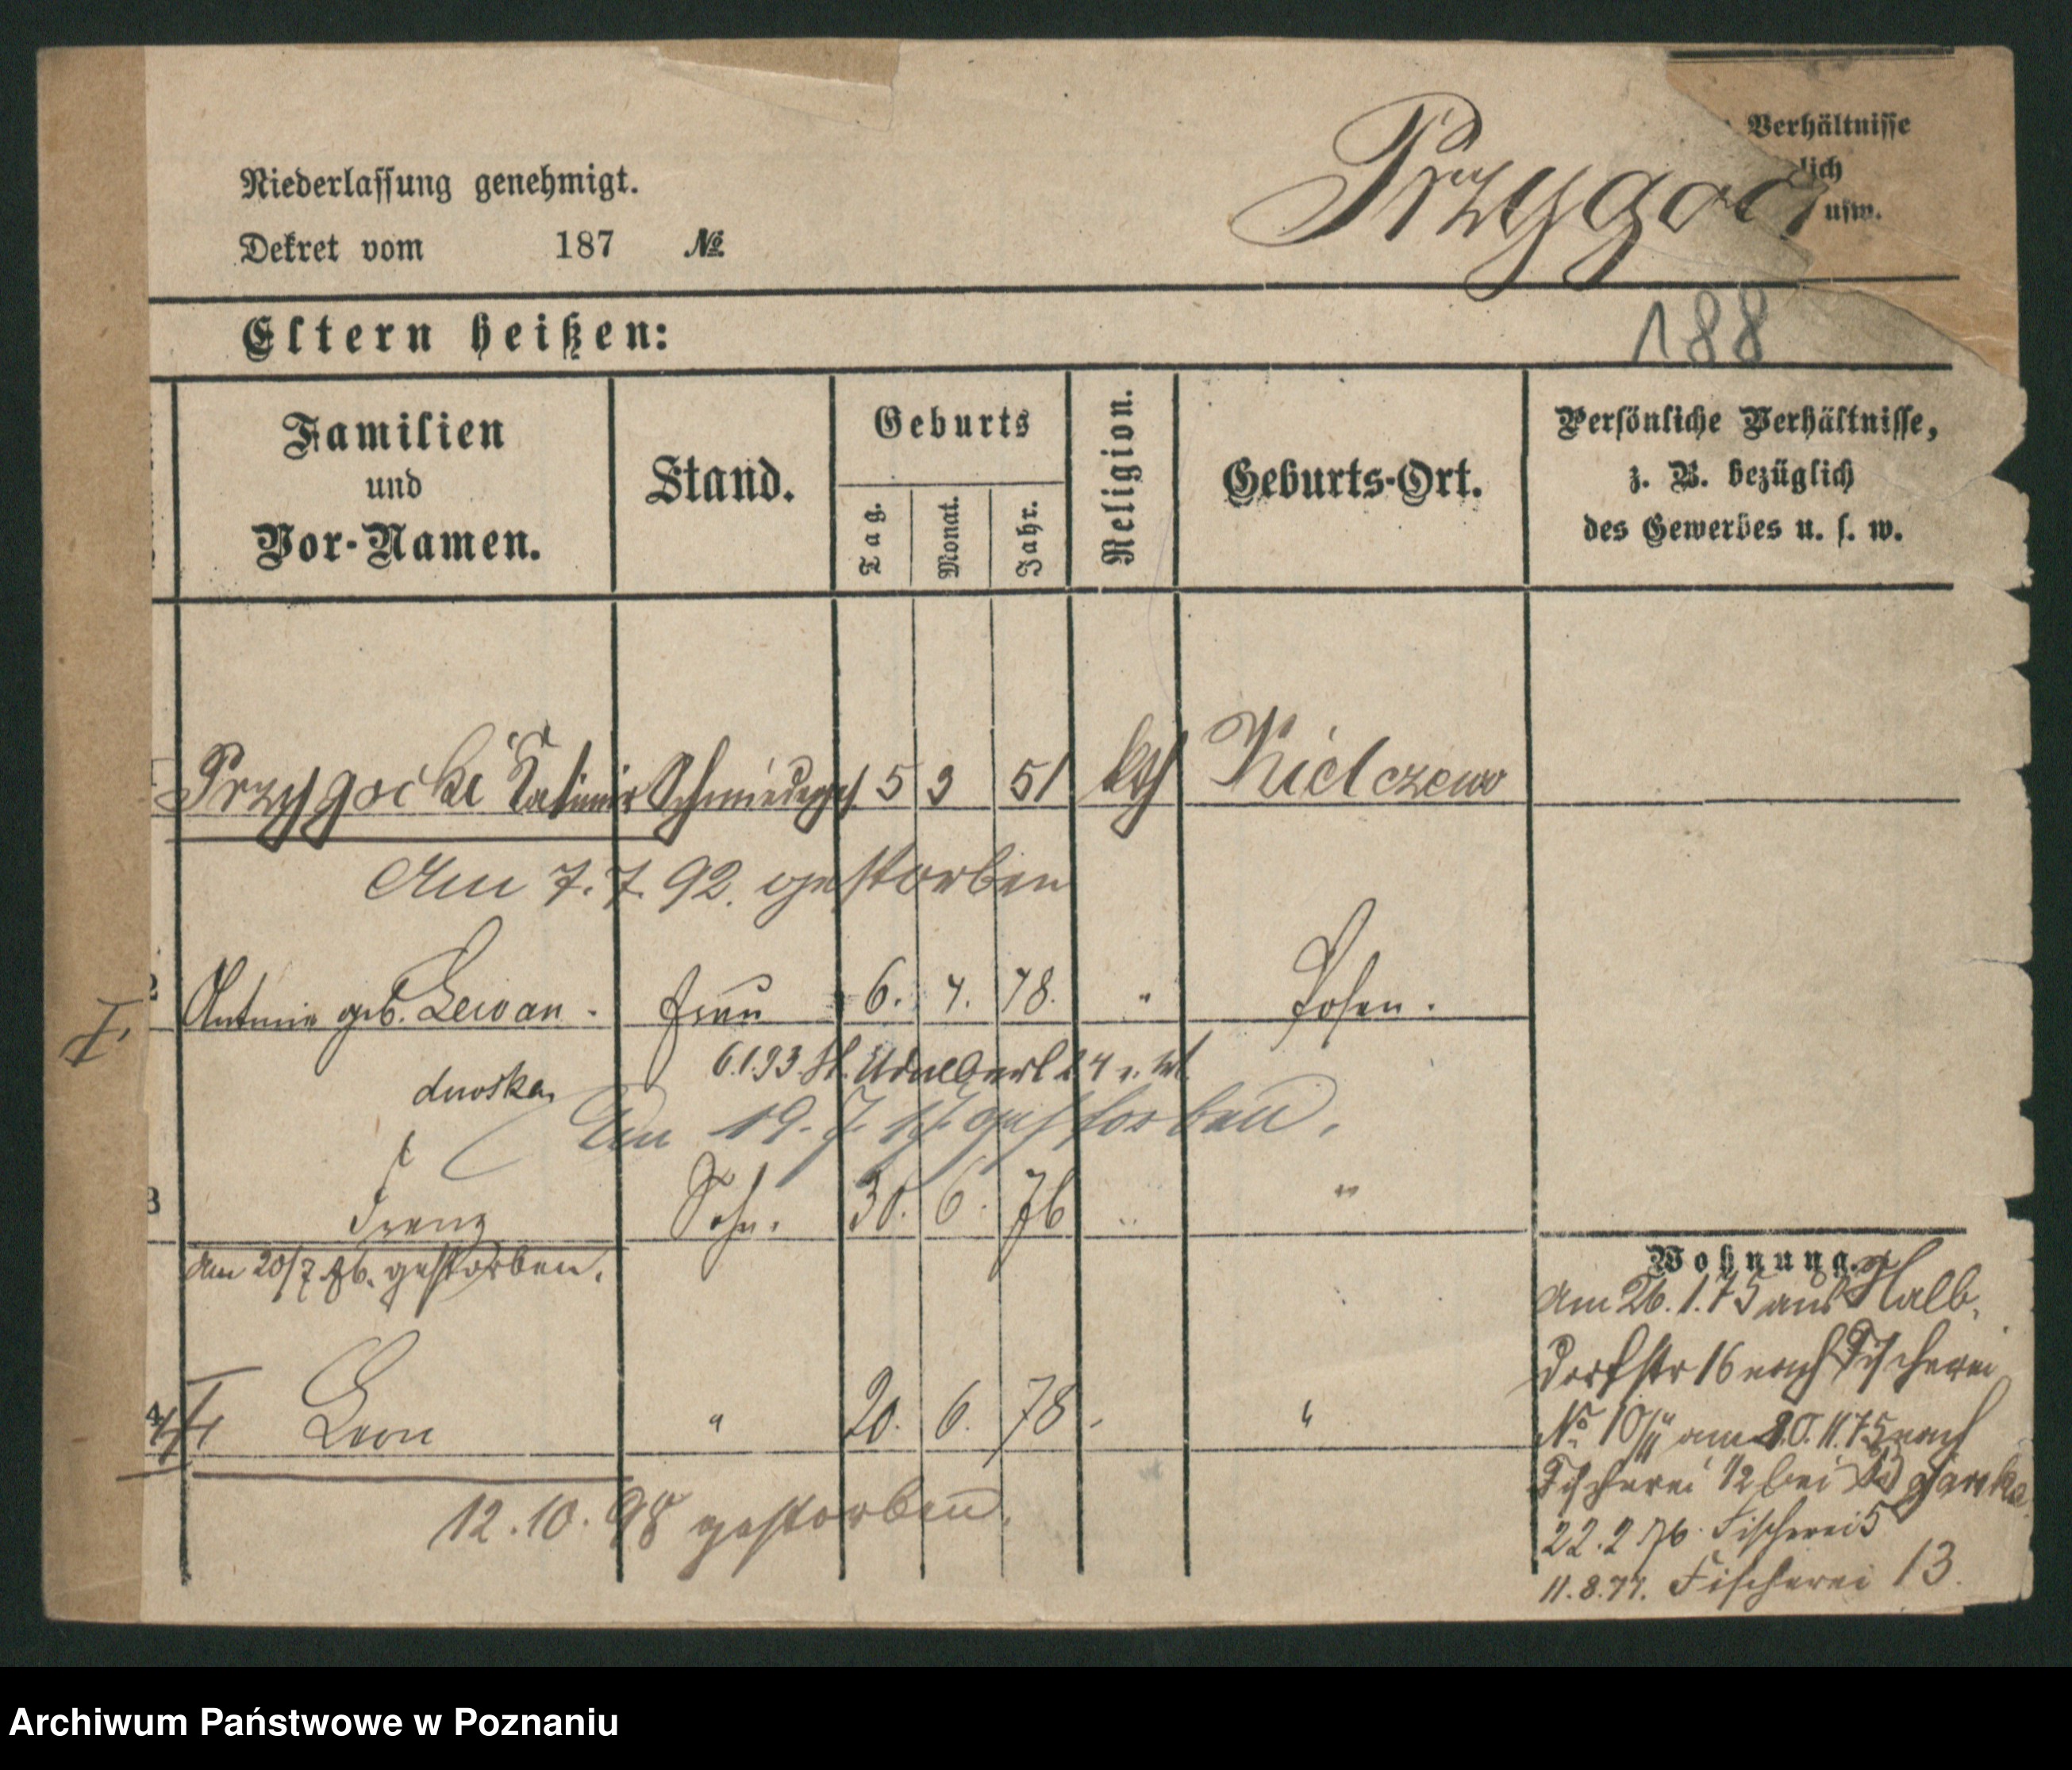 Verhältnisse
lich
usw.
Niederlassung genehmigt.
Przygoc
Dekret vom 187 №
188
Eltern heißen:
Familien
und
Vor-Namen.
Stand.
Geburts
Tag.
Monat.
Jahr.
Religion.
Geburts-Ort.
Persönliche Verhältnisse,
z. B. bezüglich
des Gewerbes u. s. w.
Przygocki Kasimir Schmiedeges 5 3 51 kth Kielczewo
Am 7. 7. 92. gestorben
2 Antonie geb. Lewan. Frau 6. 4. 78. " Posen.
dowska
6.1.93.
Am 19. 7. 17 gestorben.
3 Franz Sohn. 30. 6. 76 " "
Am 20/7 76. gestorben.
4 Leon " 20. 6. 78. "
12. 10. 98 gestorben.
Wohnung.
Am 26. 1. 75 aus Halb-
dorfstr 16 nach Fischerei
No. 10/11 am 11. 75 nach
Fischerei 1/2 bei
22. 2 76. Fischerei 5
11. 8. 77. Fischerei 13.
Archiwum Państwowe w Poznaniu